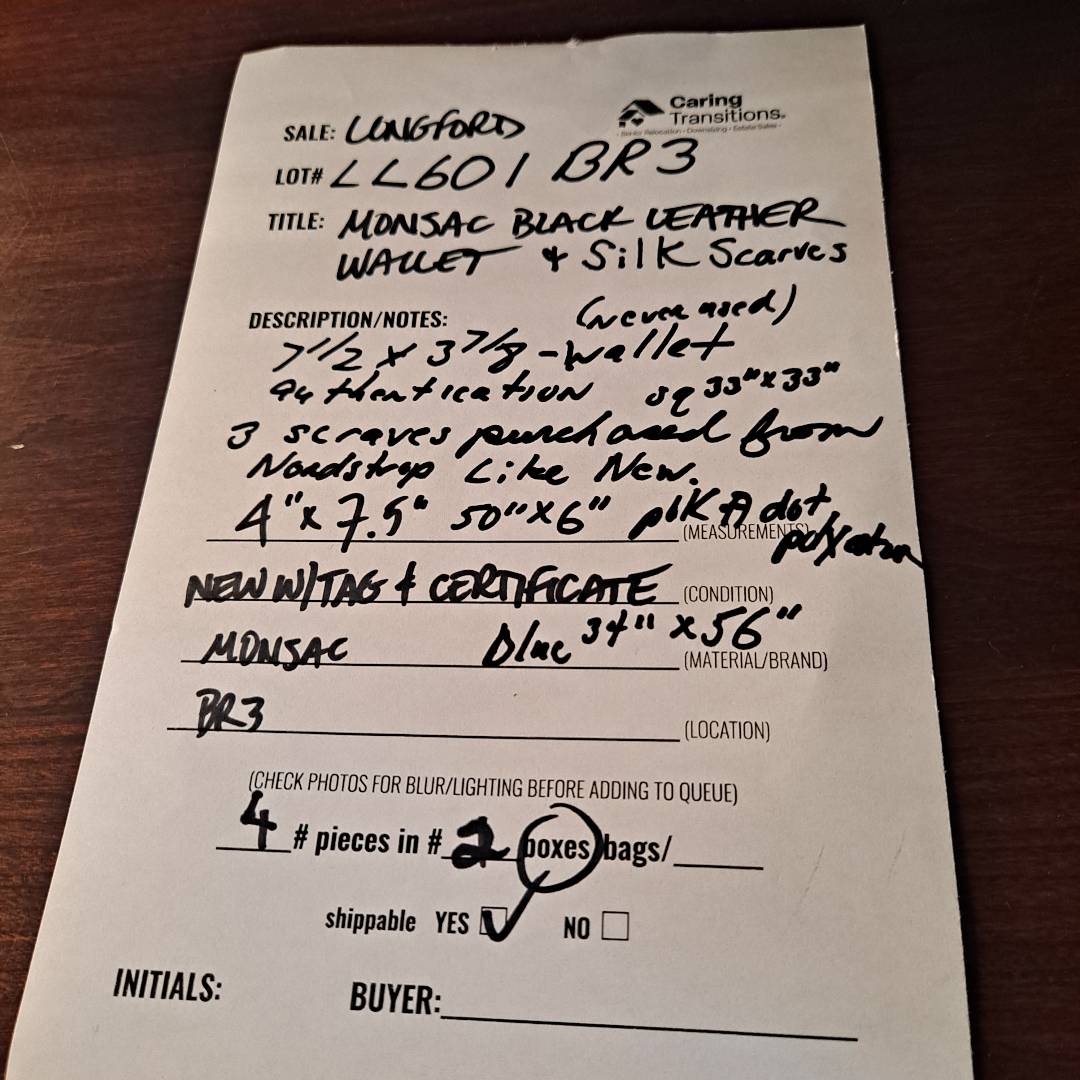 Caring
Transitions®
Senior Relocation • Downsizing • Estate Sales
SALE: LONGFORD
LOT# LL601 BR3
TITLE: MONSAC BLACK LEATHER
WALLET & Silk Scarves
DESCRIPTION/NOTES: (never used)
7 1/2 x 3 7/8 - wallet
authentication sq 33" x 33"
3 scraves purchased from
Nordstrop Like New.
4" x 7.5" 50" x 6" plKA dot
(MEASUREMENTS)
NEW W/TAG & CERTIFICATE (CONDITION)
MONSAC blue 34" x 56"
(MATERIAL/BRAND)
BR3 (LOCATION)
(CHECK PHOTOS FOR BLUR/LIGHTING BEFORE ADDING TO QUEUE)
4 # pieces in # 2 boxes/bags/
shippable YES NO
INITIALS: BUYER: